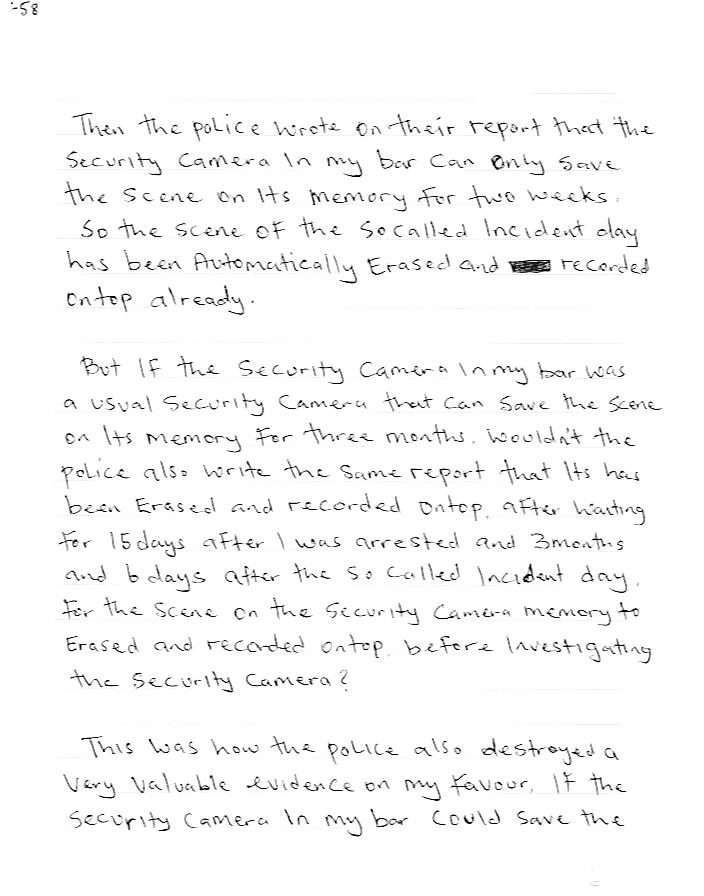 :-58
Then the police wrote on their report that the
Security Camera In my bar Can Only Save
the Scene on Its Memory For two weeks.
So the Scene OF the So called Incident day
has been Automatically Erased and recorded
Ontop already.
But IF the Security Camera In my bar was
a usual Security Camera that Can Save the Scene
on Its Memory For three months. Wouldn't the
police also write the Same report that Its has
been Erased and recorded Ontop, after Waiting
For 15 days after I was arrested and 3 months
and 6 days after the So Called Incident day,
For the Scene on the Security Camera memory to
Erased and recorded ontop, before Investigating
the Security Camera?
This was how the police also destroyed a
Very Valuable evidence on my Favour. If the
Security Camera In my bar Could Save the